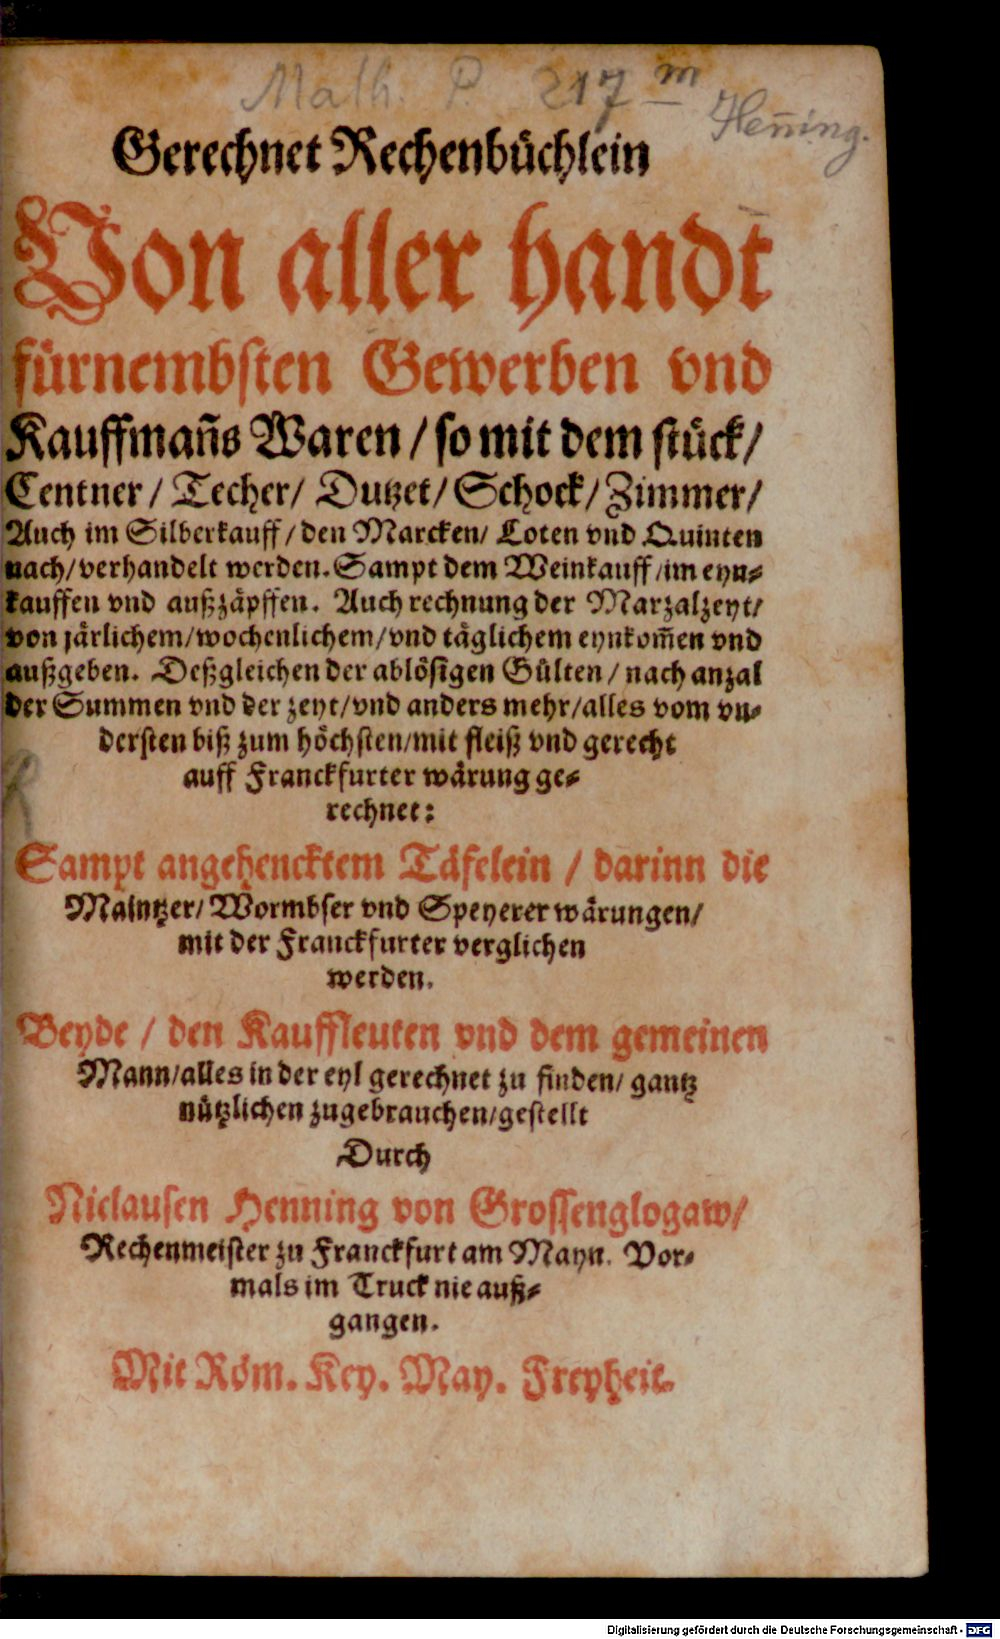 Math. P. 217 m
Hen̄ing.
Gerechnet Rechenbüchlein
Von aller handt
fürnembsten Gewerben vnd
Kauffmañs Waren / so mit dem stück /
Centner / Techer / Dutzet / Schock / Zimmer /
Auch im Silberkauff / den Marcken / Loten vnd Quinten
nach / verhandelt werden. Sampt dem Weinkauff / im eyn⸗
kauffen vnd außzäpffen. Auch rechnung der Marzalzeyt /
von järlichem / wochenlichem / vnd täglichem eynkom̃en vnd
außgeben. Deßgleichen der ablösigen Gülten / nach anzal
der Summen vnd der zeyt / vnd anders mehr / alles vom vn⸗
dersten biß zum höchsten / mit fleiß vnd gerecht
auff Franckfurter wärung ge⸗
rechnet:
Sampt angehencktem Täfelein / darinn die
Maintzer / Wormbser vnd Speyerer wärungen /
mit der Franckfurter verglichen
werden.
Beyde / den Kauffleuten vnd dem gemeinen
Mann / alles in der eyl gerechnet zu finden / gantz
nützlichen zugebrauchen / gestellt
Durch
Niclausen Henning von Grossenglogaw /
Rechenmeister zu Franckfurt am Mayn. Vor⸗
mals im Truck nie auß⸗
gangen.
Mit Röm. Key. May. Freyheit.
Digitalisierung gefördert durch die Deutsche Forschungsgemeinschaft - DFG